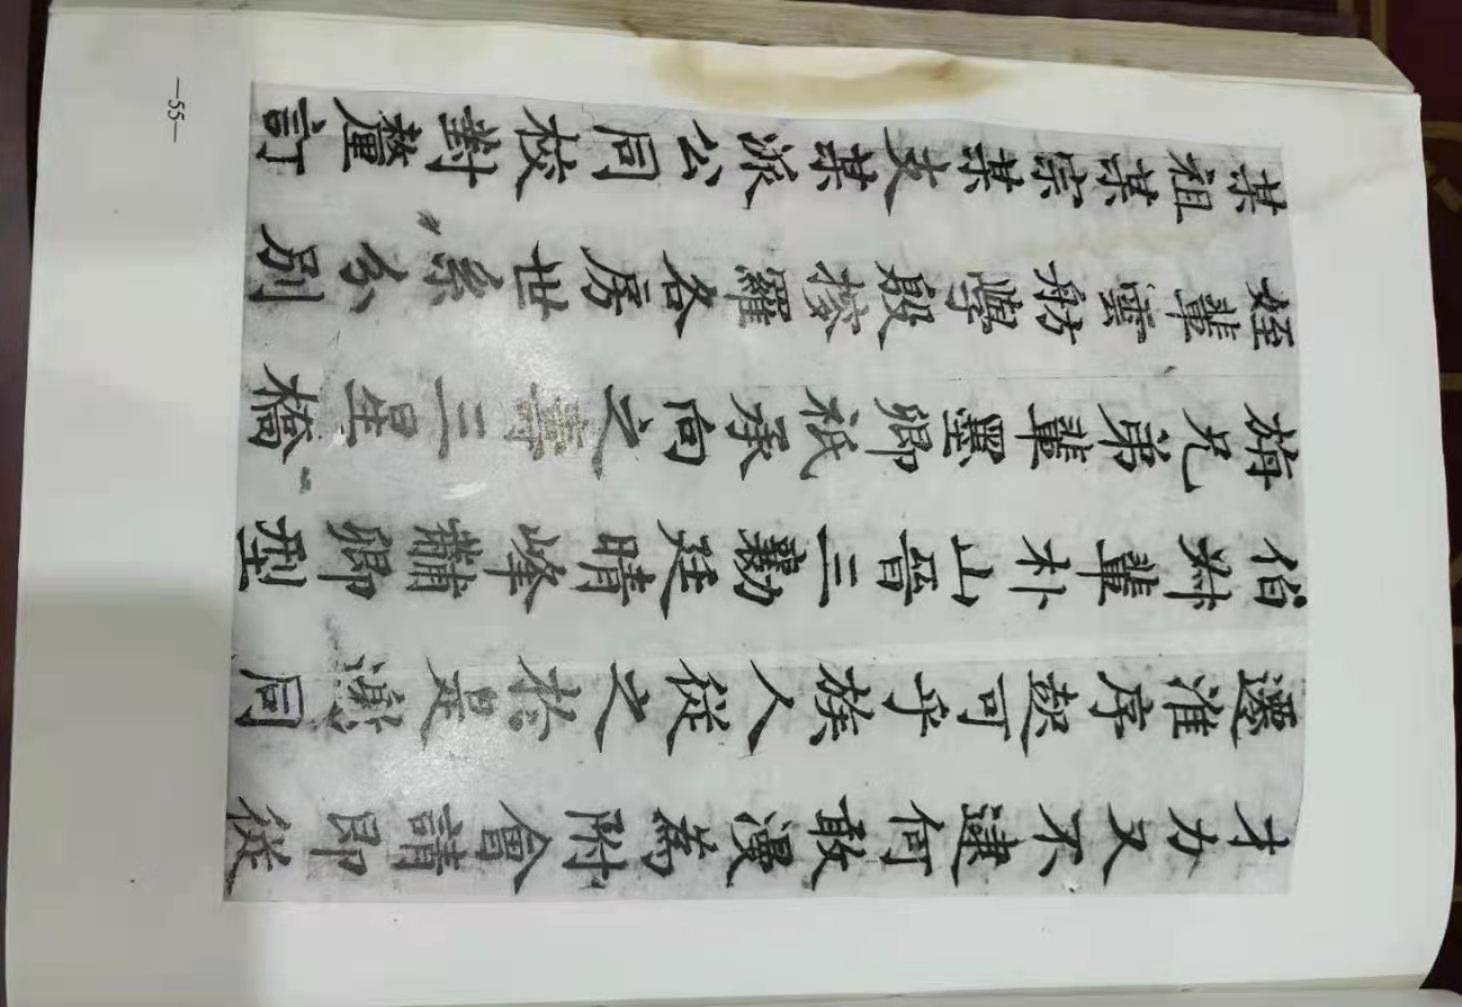 才力又不逮何敢漫為附會請即從
遷淮序起可乎族人從之於是謝同
伯叔輩朴山晉三勷廷晴峰黼卿型
旃兄弟輩墨卿祇承向之壽三星橋
姪輩雲舫殷羅各房世系分別
某祖某宗某支某派公同校對釐訂
—55—